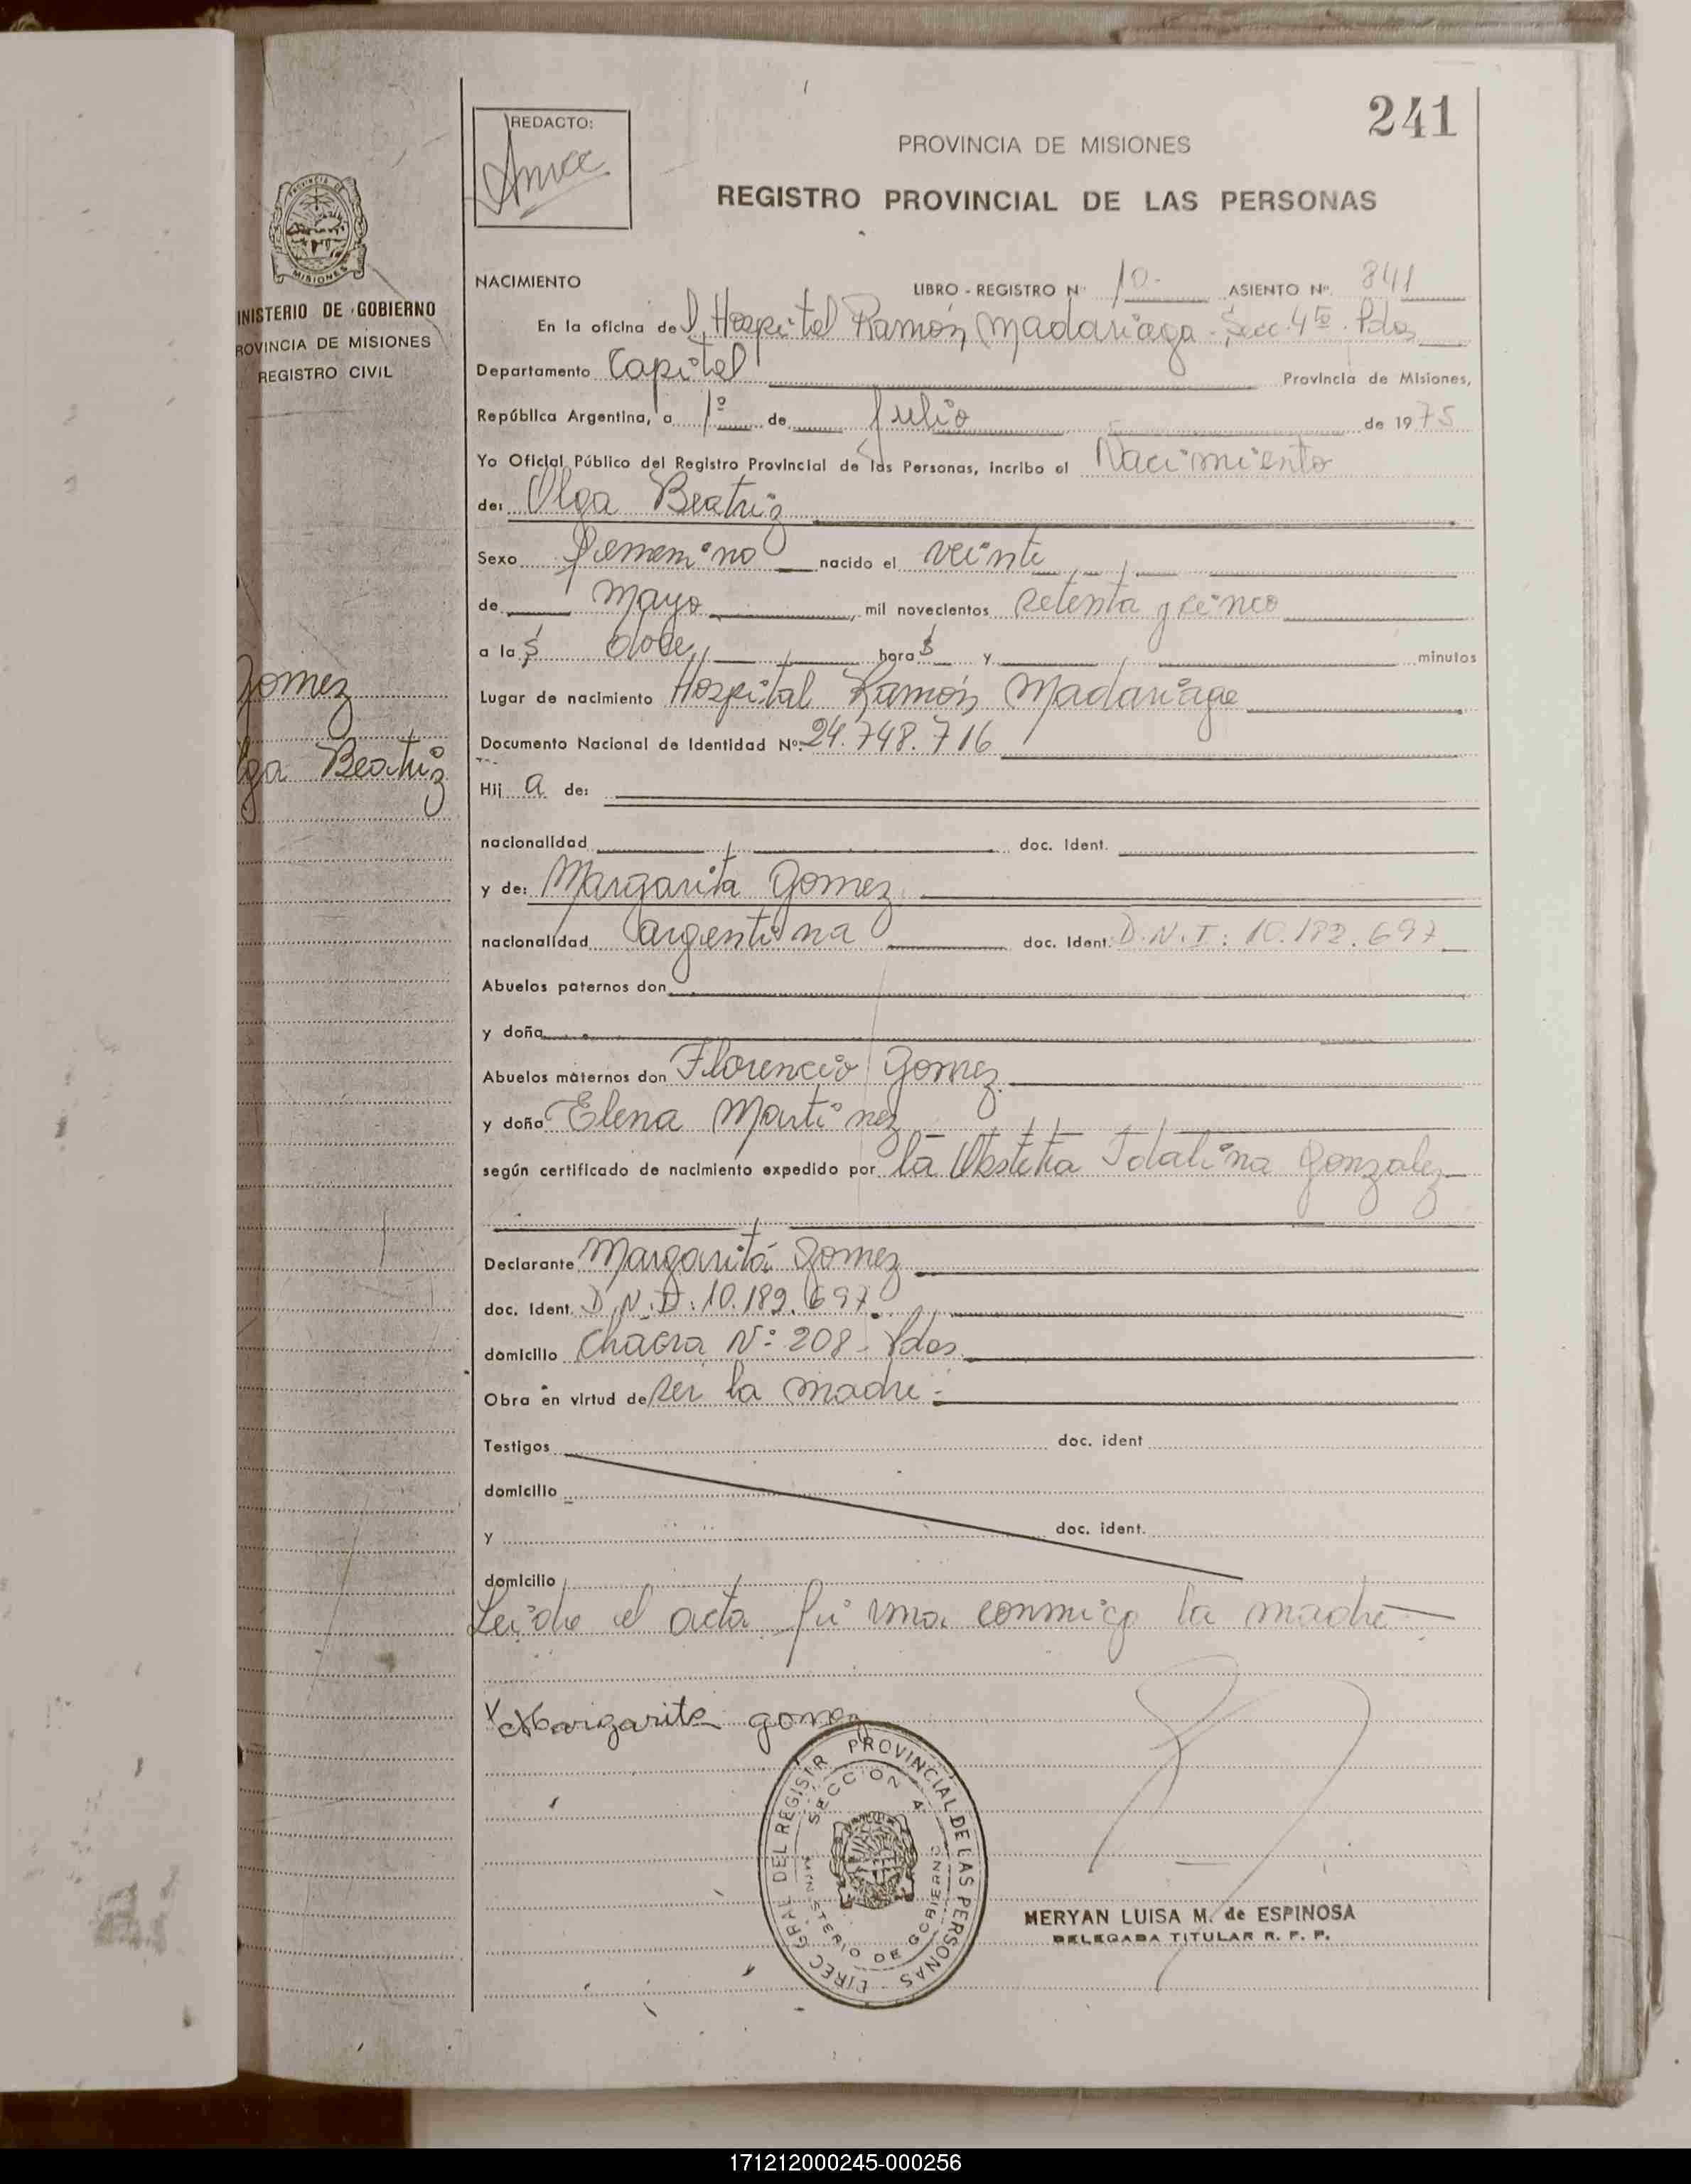 241
REDACTO:
PROVINCIA DE MISIONES
REGISTRO PROVINCIAL DE LAS PERSONAS
PROVINCIA DE
MISIONES
INISTERIO DE GOBIERNO
ROVINCIA DE MISIONES
REGISTRO CIVIL
Gomez
lga Beatriz
NACIMIENTO LIBRO - REGISTRO N° 10- ASIENTO N° 841
En la oficina del Hospital Ramón Madariaga - Secc. 4ta. Pdas
Departamento Capital Provincia de Misiones,
República Argentina, a 1º de Julio de 1975
Yo Oficial Público del Registro Provincial de las Personas, incribo el Nacimiento
de: Olga Beatriz
Sexo femenino nacido el veinte
de mayo mil novecientos setenta y cinco
a las doce hora s y minutos
Lugar de nacimiento Hospital Ramón Madariaga
Documento Nacional de Identidad Nº 24.748.716
Hij a de:
nacionalidad doc. Ident.
y de: Margarita Gomez
nacionalidad argentina doc. Ident. D.N.I: 10.182.697
Abuelos paternos don
y doña
Abuelos maternos don Florencio Gomez
y doña Elena Martinez
según certificado de nacimiento expedido por la Obstetra Idalina Gonzalez
Declarante Margarita Gomez
doc. Ident. D.N.I: 10.182.697.
domicilio Chacra Nº 208 - Pdas.
Obra en virtud de ser la madre.
Testigos doc. ident
domicilio
y doc. ident.
domicilio
Leida el acta firma conmigo la madre
Margarita gomez
DIREC GRAL DEL REGISTR PROVINCIAL DE LAS PERSONAS
SECCION 4
MINISTERIO DE GOBIERNO
MERYAN LUISA M. de ESPINOSA
DELEGADA TITULAR R. P. P.
171212000245-000256